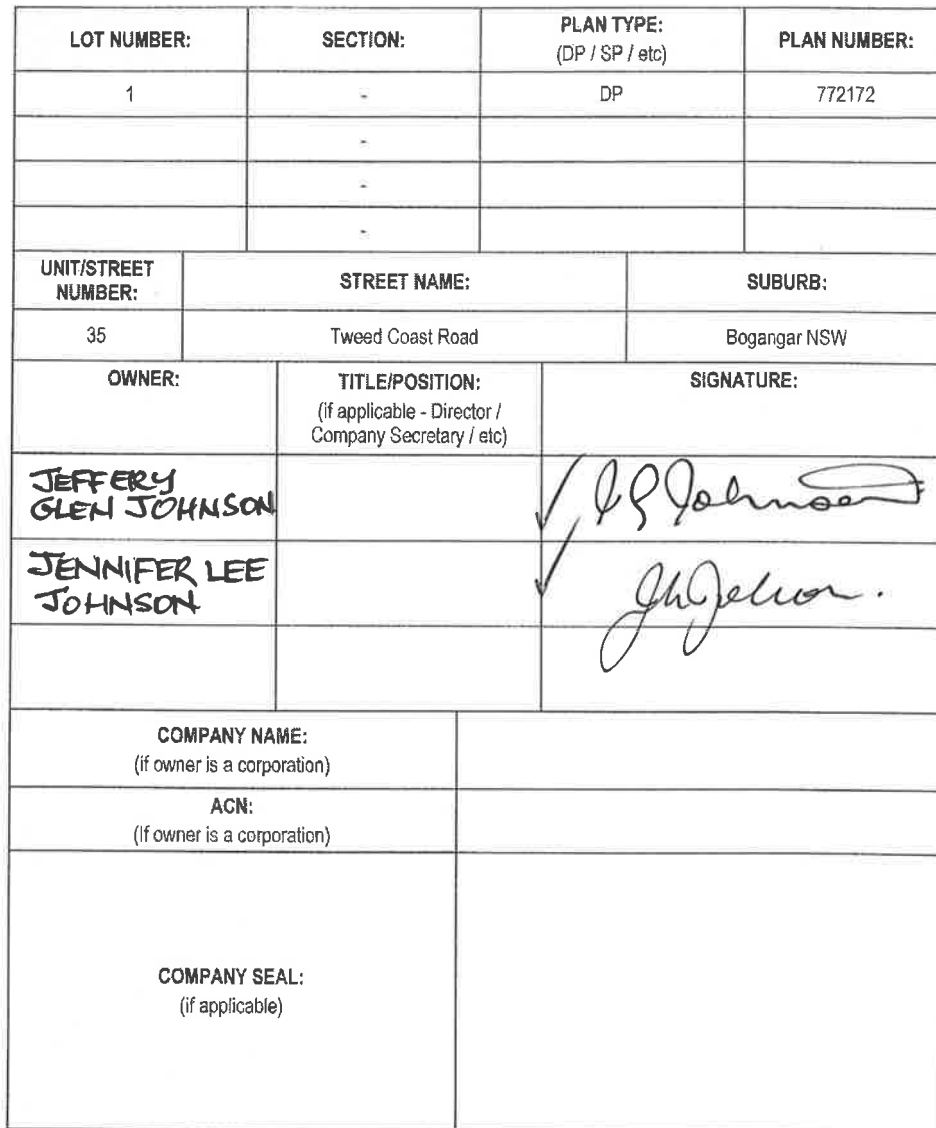 LOT NUMBER: SECTION: PLAN TYPE: PLAN NUMBER:
(DP / SP / etc)
1 - DP 772172
-
-
-
UNIT/STREET NUMBER: STREET NAME: SUBURB:
35 Tweed Coast Road Bogangar NSW
OWNER: TITLE/POSITION: SIGNATURE:
(if applicable - Director /
Company Secretary / etc)
JEFFERY
GLEN JOHNSON
JENNIFER LEE
JOHNSON
COMPANY NAME:
(if owner is a corporation)
ACN:
(If owner is a corporation)
COMPANY SEAL:
(if applicable)